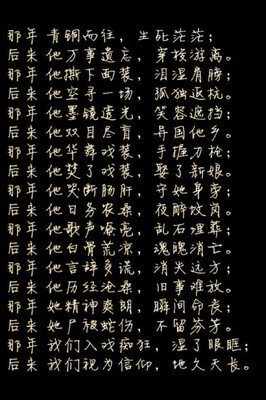 那年 青铜而往，生死茫茫；
后来 他万事遗忘，穿梭游离。
那年 他撕下面装，泪湿肩膀；
后来 他空寻一场，孤独返杭。
那年 他墨镜透光，笑容遮挡；
后来 他双目尽盲，异国他乡。
那年 他华舞戏装，手握刀枪；
后来 他焚了戏装，娶了新娘。
那年 他哭断肠肝，守她身旁；
后来 他日务农桑，夜醉坟岗。
那年 他歌声嘹亮，乱石埋葬；
后来 他白骨荒凉，魂魄消亡。
那年 他言辞多谎，消失远方；
后来 他历经沧桑，旧事难放。
那年 她精神爽朗，瞬间命丧；
后来 她尸被蛇伤，不留芬芳。
那年 我们入戏痴狂，湿了眼眶；
后来 我们视为信仰，地久天长。